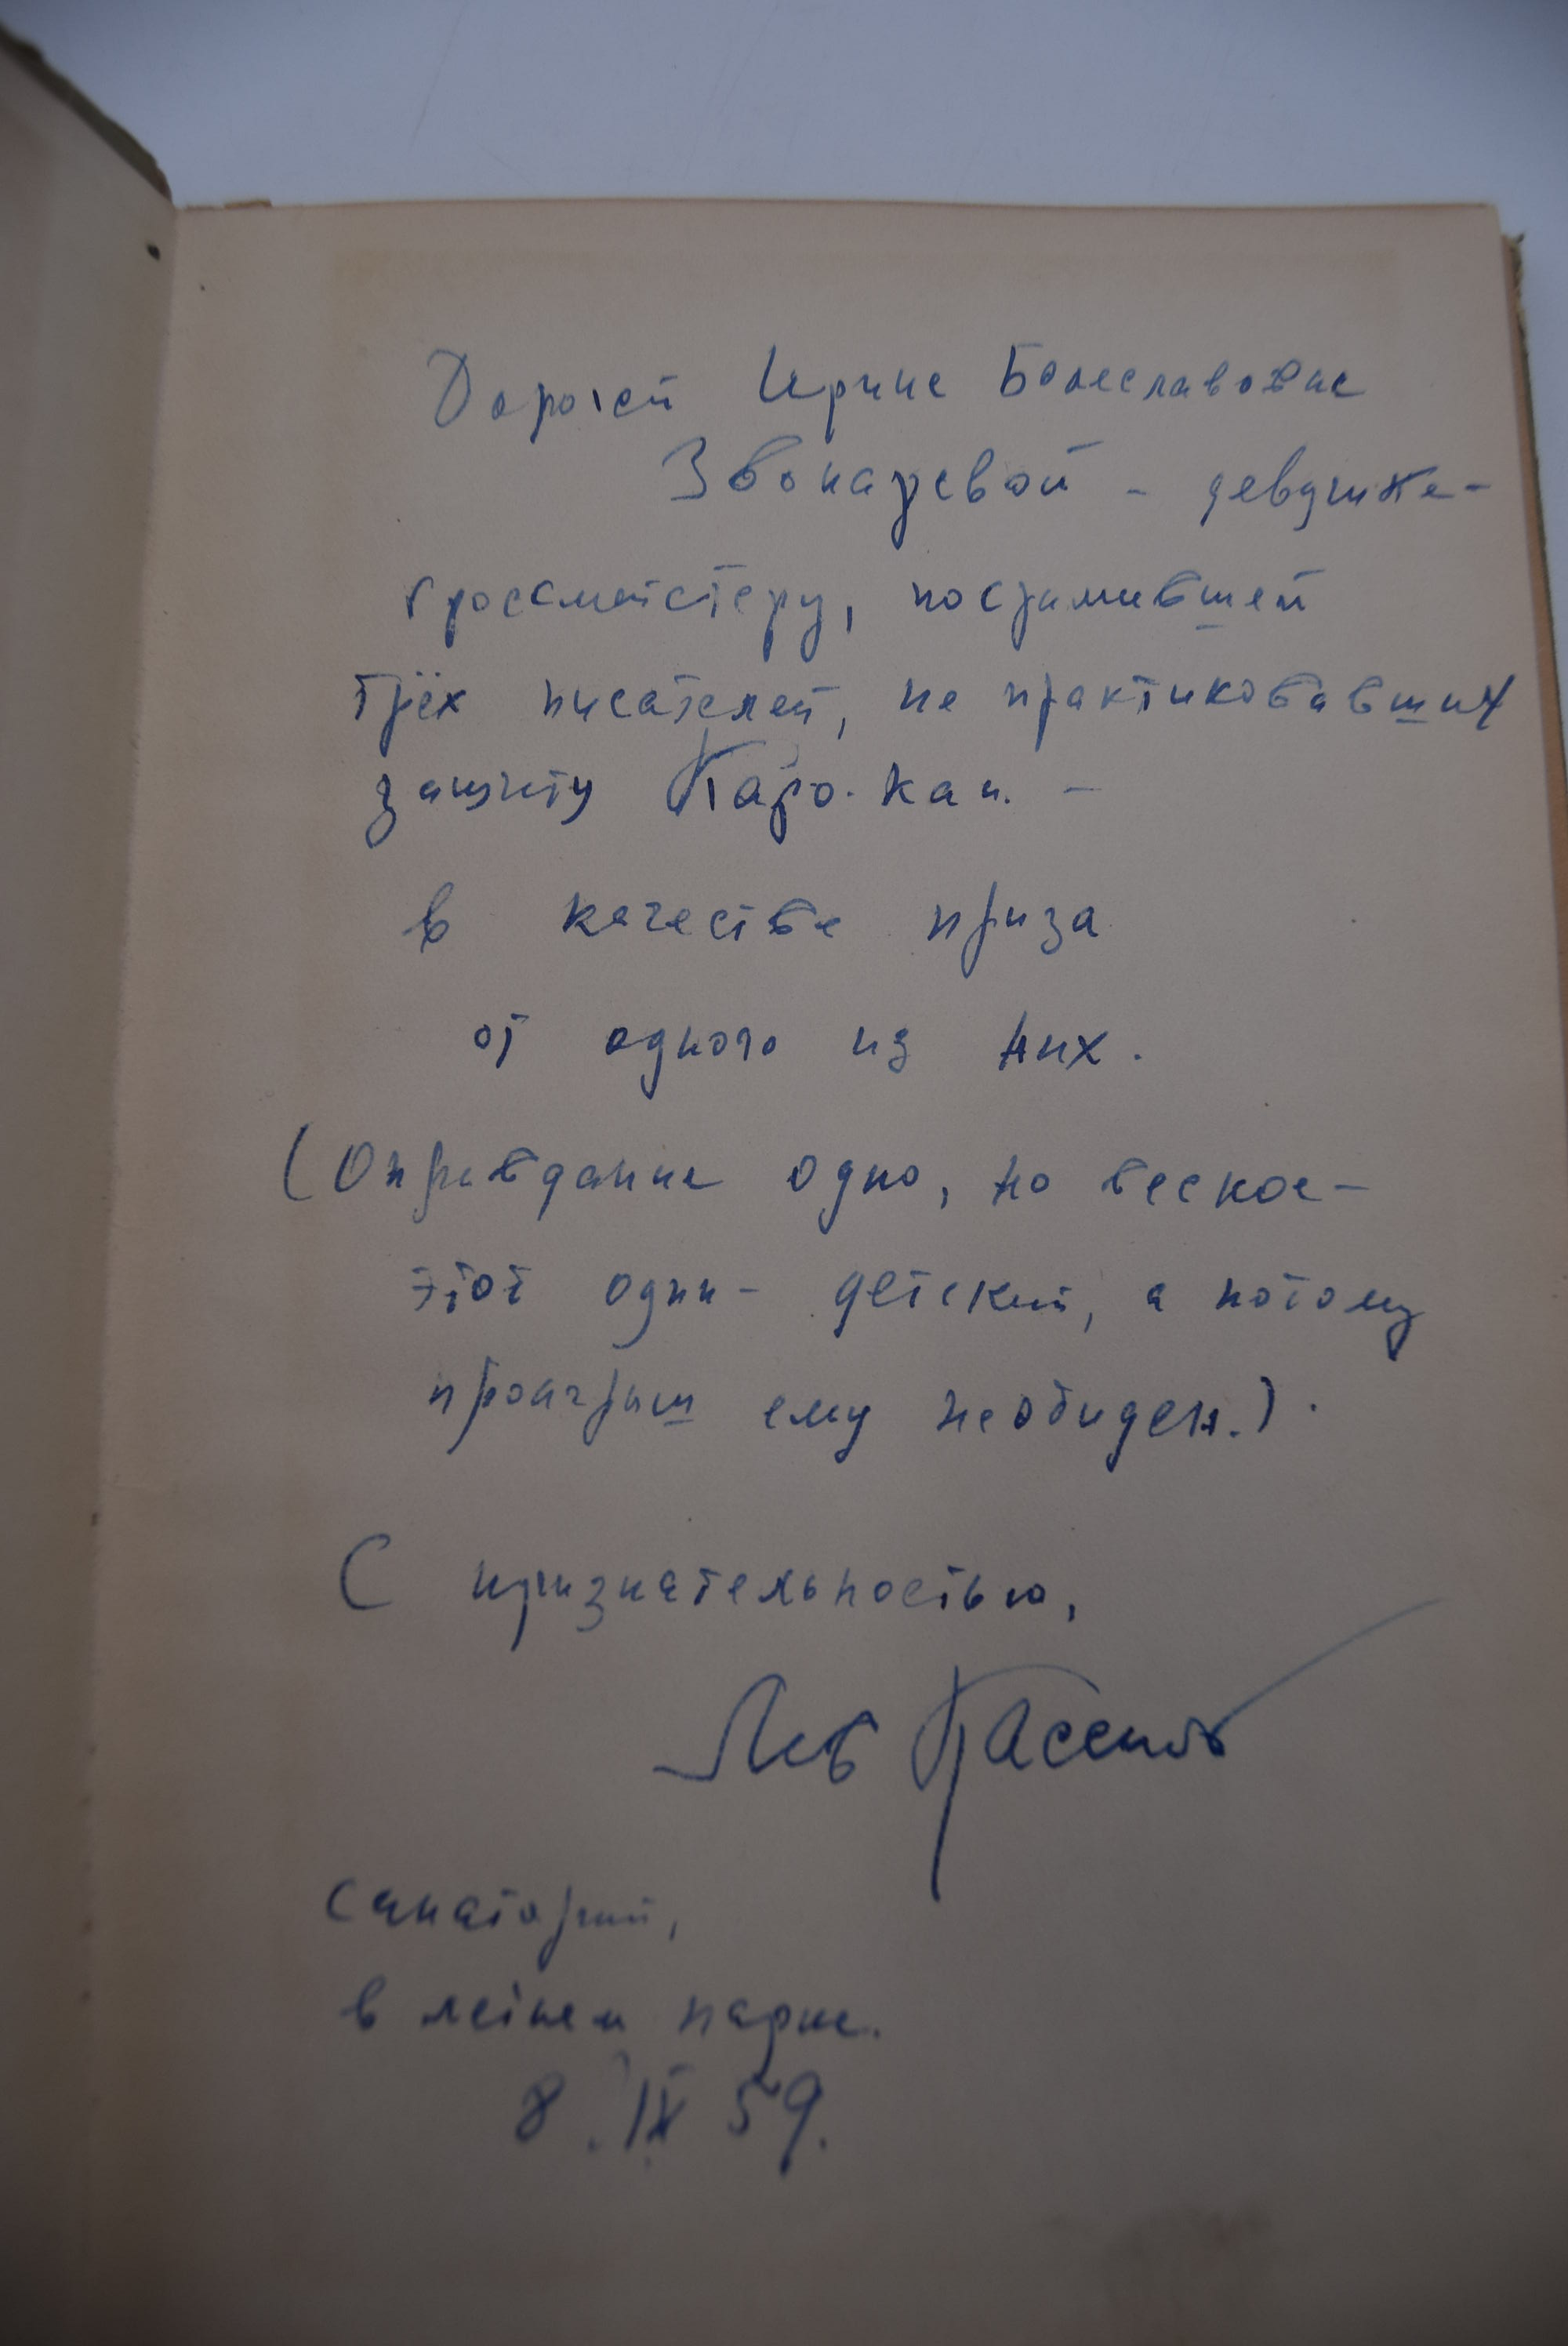 Дорогой Ирине Болеславовне
Звонаревой - девушке-
гроссмейстеру, посрамившей
трёх писателей, не практиковавших
защиту Каро-Кан. -
в качестве приза
от одного из них.
(Оправдание одно, но веское -
этот один - детский, а потому
проигрыш ему необиден.).
С признательностью,
Лев Кассиль
Санаторий,
в летнем парке.
8.IX 59.